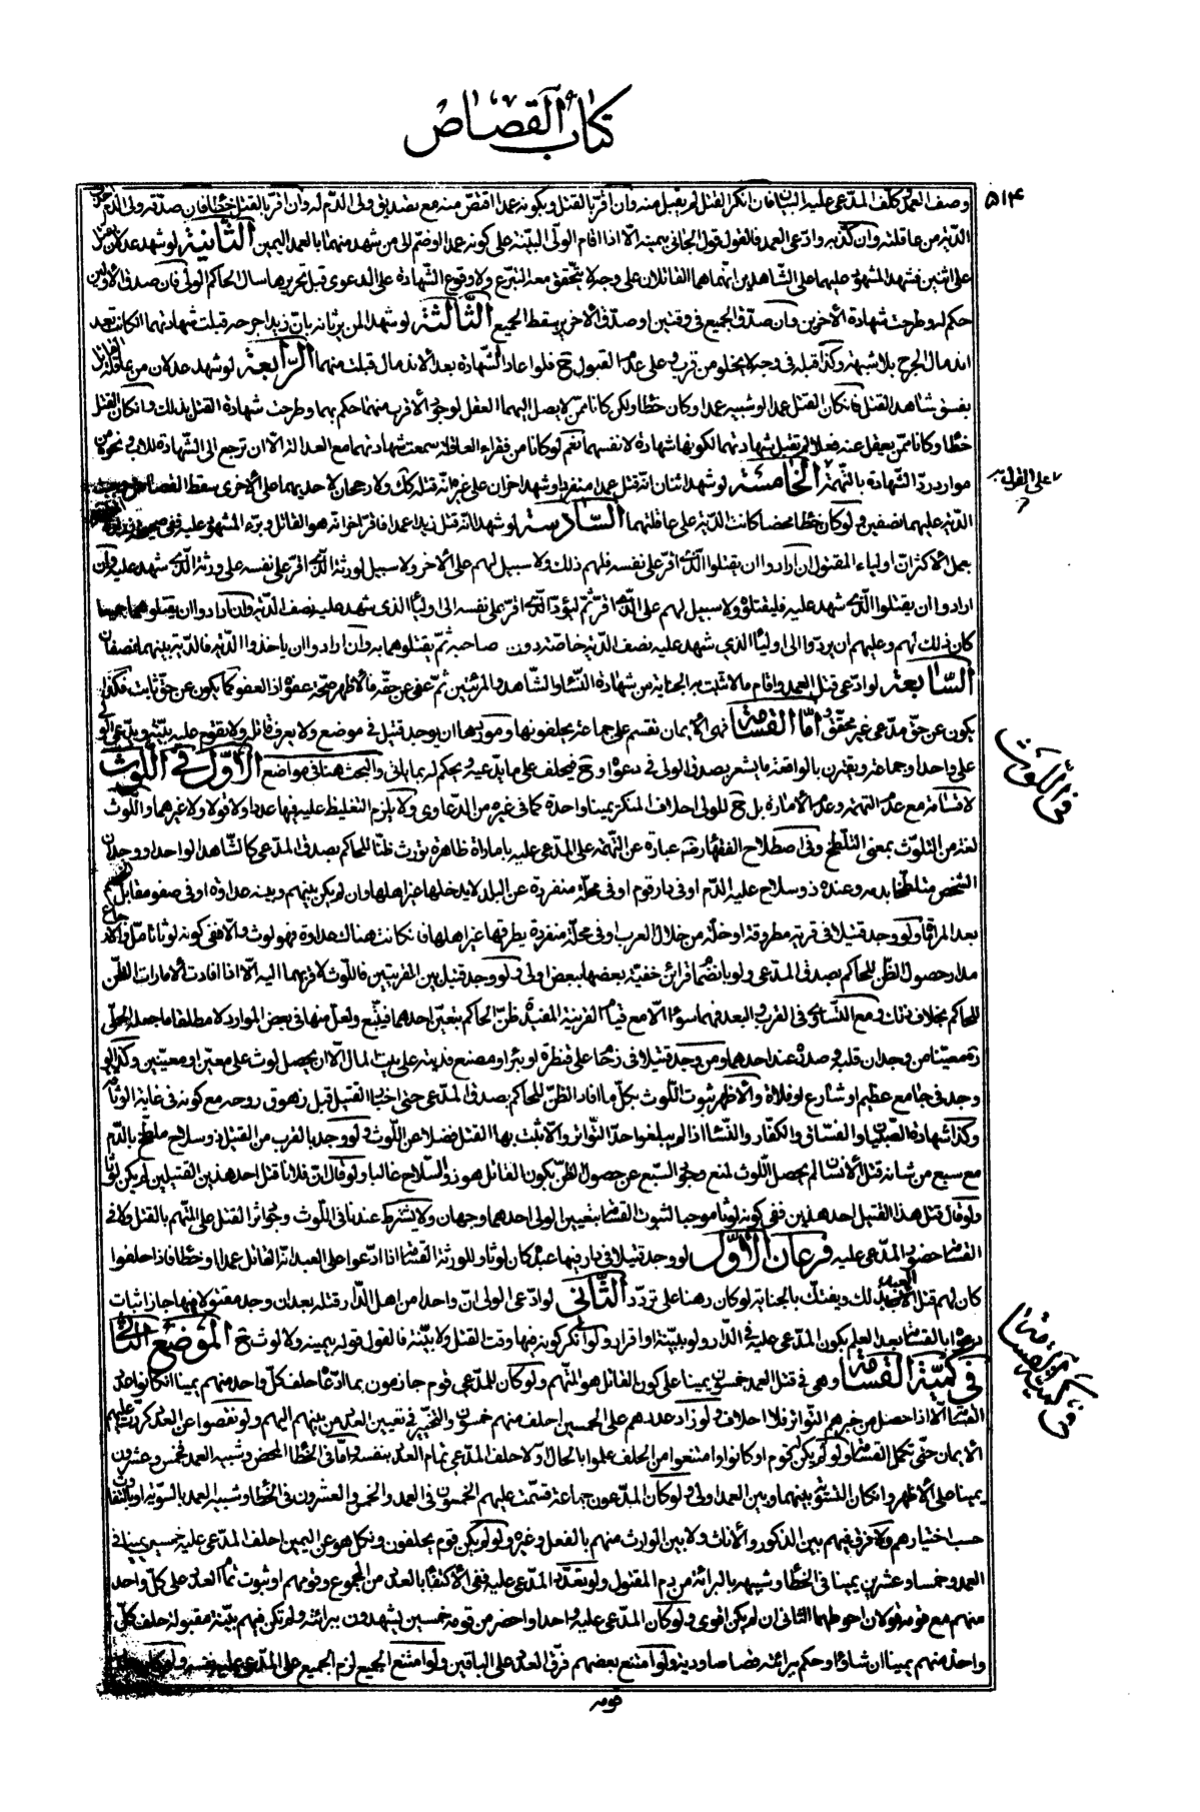 كتاب القصاص
٥١٤
وصف العمل كلف المدّعى عليه البيان فان انكر القتل لم يقبل منه وان اقرّ بالقتل وبكونه عمدا اقتصّ منه مع تصديق ولى الدّم له وان اقرّ بالقتل خطأ فان صدّقه ولى الدّم
الدّية من عاقلته وان كذّبه وادّعى العمد فالقول قول الجانى بيمينه الّا اذا اقام الولّى البيّنة على كونه عمدا لو ضمّ الى من شهد منهما بالعمد اليمين الثّانية لو شهد عدلان
على اثنين فشهد المشهود عليهما على الشّاهدين انّهما هما القاتلان على وجه لا يتحقق معه التبرّع ولا وقوع الشّهادة على الدعوى قبل تحريرها سال الحاكم الولّى فان صدق الاولين
حكم له وطرحت شهادة الأخرين وان صدّق الجميع فى وقتين او صدّق الأخرين سقط الجميع الثّالثة لو شهدا لمن يرثانه بانّ زيدا جرحه قبلت شهادتهما ان كانت بعد
اندمال الجرح بلا شبهة وكذا قبله فى وجه لا يخلو من قرب وعلى عدم القبول ح فلو اعادا الشّهادة بعد الاندمال قبلت منهما الرّابعة لو شهد عدلان من عاقلة القاتل
بفسق شاهد القتل فان كان القتل عمدا او شبيه عمد او كان خطأ ولكن كانا ممّن لا يصل اليهما العقل لوجود الأقرب منهما حكم بهما وطرحت شهادة القتل بذلك وان كان القتل
خطأ وكانا ممّن يعقل عنه فعلا لم تقبل شهادتهما لكونها شهادة لانفسهما نعم لو كانا من فقراء العاقلة سمعت شهادتهما مع العدالة الّا ان ترجع الى الشّهادة للاب ونحوه من
موارد ردّ الشّهادة بالتّهمة الخامسة لو شهد اثنان انّه قتل عمدا منفردا وشهد اخران على غيره انّه قتله كك ولا رجحان لاحديهما على الأخرى سقط القصاص
على القول به
الدّية عليهما نصفين ولو كان خطأ محضا كانت الدّية على عاقلتهما السّادسة لو شهدا انّه قتل زيدا عمدا فاقرّ اخر انّه هو القاتل وبرّء المشهود عليه ففى
بعمل الأكثر انّ اولياء المقتول ان ارادوا ان يقتلوا الّذى اقرّ على نفسه فلهم ذلك ولا سبيل لهم على الأخر ولا سبيل لورثة الّذى اقرّ على نفسه على ورثة الّذى شهد عليه وان
ارادوا ان يقتلوا الّذى شهد عليه فليقتلوه ولا سبيل لهم على الّذى اقرّ ثم ليؤدّ الّذى اقرّ على نفسه الى اولياء الذى شهد عليه نصف الدّية وان ارادوا ان يقتلوهما جميعا
كان ذلك لهم وعليهم ان يردّوا الى اولياء الذى شهد عليه نصف الدّية خاصّة دون صاحبه ثمّ يقتلوهما به وان ارادوا ان ياخذوا الدّية فالدّية بينهما نصفان
السّابعة لو ادّعى قتل العمد واقام ما لا تثبت به الجناية من شهادة النّساء او الشّاهد والمرئتين ثمّ عفى عن حقّه فالأظهر صحّة عفوه اذ العفو كما يكون عن حقّ ثابت فكذا
يكون عن حقّ مدّعى غير محقّق وامّا القسامة فهى الأيمان تقسم على جماعة يحلفونها وموردها ان يوجد قتيل فى موضع ولا يعرف قاتله ولا تقوم عليه بيّنة ويدّعى الولى
على واحد او جماعة ويقترن بالواقعة ما يشعر بصدق الولى فى دعواه ح فيحلف على ما يدّعيه ويحكم له بما ياتى والبحث هنا فى مواضع الأوّل فى اللّوث
فى اللّوث
لا قسامة مع عدم التهمة وعدم الأمارة بل ح للولى احلاف المنكر يمينا واحدة كما فى غيره من الدّعاوى ولا يلزم التغليظ عليه فيها عددا ولا قولا ولا غيرهما واللّوث
لغة من التلوّث بمعنى التلطّخ وفى اصطلاح الفقهاء رضه عبارة عن التّهمة على المدّعى عليه بامارة ظاهرة تورث ظنّا للحاكم بصدق المدّعى كالشّاهد الواحد او وجدان
الشخص متلطّخا بدمه وعنده ذو سلاح عليه الدّم او فى دار قوم او فى محلّة منفردة عن البلد لا يدخلها غير اهلها وان لم يكن بينهم وبينه عداوة او فى صف مقابل
بعد المراماة ولو وجد قتيلا فى قرية مطروقة او خلّة من خلال العرب او فى محلّة منفردة يطرقها غير اهلها فان كانت هناك عداوة فهو لوث والّا ففى كونه لوثا تامّل والأمر
مدار حصول الظّن للحاكم بصدق المدّعى ولو بانضمام قرائن خفيّة بعضها ببعض اولى ولو وجد قتيل بين القريتين فاللّوث لاقربهما اليه الّا اذا افادت الأمارات الظّن
للحاكم بخلاف ذلك ومع التّساوى فى القرب والبعد فهما سواء الّا مع قيام القرينة المفيدة ظنّ الحاكم بتعيّن احدهما فيتّبع ولعلّ منها فى بعض الموارد لا مطلقا ما جعله الحلّى
ره معيّنا من وجدان قلبه وصدره عند احدهما ومن وجد قتيلا فى زحام على قنطرة او بئر او مصنع فديته على بيت المال الّا ان يحصل لوث على معيّن او معيّنين وكذا لو
وجد فى جامع عظيم او شارع او فلاة والأظهر ثبوت اللّوث بكلّ ما افاد الظّن للحاكم بصدق المدّعى حتى اخبار القتيل قبل زهوق روحه مع كونه فى غاية الوثاقة
وكذا شهادة الصّبيان والفسّاق والكفّار والنّساء اذا لم يبلغوا حدّ التّواتر والّا ثبت بها القتل فضلا عن اللّوث ولو وجد بالقرب من القتيل ذو سلاح ملطّخ بالدّم
مع سبع من شانه قتل الانسان لم يحصل اللّوث لمنع وجود السّبع عن حصول الظّن بكون القاتل هو ذو السّلاح غالبا ولو قال انّ فلانا قتل احد هذين القتيلين لم يكن لوثا
ولو قال قتل هذا القتيل احد هذين ففى كونه لوثا موجبا لثبوت القسامة بتعيين الولى احدهما وجهان ولا يشترط عندنا فى اللّوث وجود اثر القتل على المتّهم بالقتل كما فى
القسامة حضور المدّعى عليه فرعان الأوّل لو وجد قتيلا فى دار فيها عبد كان لوثا وللورثة القسامة اذا ادّعوا على العبد انّه القاتل عمدا او خطأ فاذا حلفوا
كان لهم قتل العبد فى ذلك ويفتكّ بالجناية لو كان رهنا على تردّد الثّانى لو ادّعى الولى انّ واحدا من اهل الدّار قتله بعد ان وجد مقتولا فيها جاز اثبات
دعواه بالقسامة بعد العلم بكون المدّعى عليه فى الدّار ولو ببيّنة او اقرار ولو انكر كونه فيها وقت القتل ولا بيّنة فالقول قوله بيمينه ولا لوث ح الموضع الثّانى
فى كميّة القسامة
فى كميّة القسامة وهى فى قتل العمد خمسون يمينا على كون القاتل هو المتّهم ولو كان للمدّعى قوم جازمون بما ادّعاه حلف كلّ واحد منهم يمينا ان كانوا عدد
القسامة الّا اذا حصل من خبرهم التّواتر فلا احلاف ولو زاد عددهم على الخمسين احلف منهم خمسون والتّخيير فى تعيين العدد من بينهم اليهم ولو نقصوا عن العدد كرّرت عليهم
الأيمان حتّى تكمل القسامة ولو لم يكن له قوم او كانوا وامتنعوا من الحلف علموا بالحال او لا حلف المدّعى تمام العدد بنفسه وامّا فى الخطأ المحض وشبيه العمد فخمس وعشرون
يمينا على الأظهر وان كان التّسوية بينهما وبين العمد اولى ولو كان المدّعون جماعة قسمت عليهم الخمسون فى العمد والخمس والعشرون فى الخطأ وشبيه العمد بالسّوية او بالتّفاوت
حسب اختيارهم ولا فرق فيهم بين الذكور والأناث ولا بين الوارث منهم بالفعل وغيره ولو لم يكن قوم يحلفون ونكل هو عن اليمين احلف المدّعى عليه خمسين يمينا فى
العمد وخمسا وعشرين يمينا فى الخطأ وشبيهه بالبرائة من دم المقتول ولو تعدّد المدّعى عليه ففى الأكتفاء بالعدد من المجموع وقومهم او ثبوت تمام العدد على كلّ واحد
منهم مع قومه قولان احوطهما الثانى ان لم يكن اقوى ولو كان المدّعى عليه واحدا واحضر من قومه خمسين ليشهدون ببرائته ولم تكن فيهم بيّنة مقبولة حلف كلّ
واحد منهم يمينا ان شاؤا وحكم ببرائته قصاصا ودية ولو امتنع بعضهم فرّق العدد على الباقين ولو امتنع الجميع لزم الجميع على المدّعى عليه بنفسه
قومه